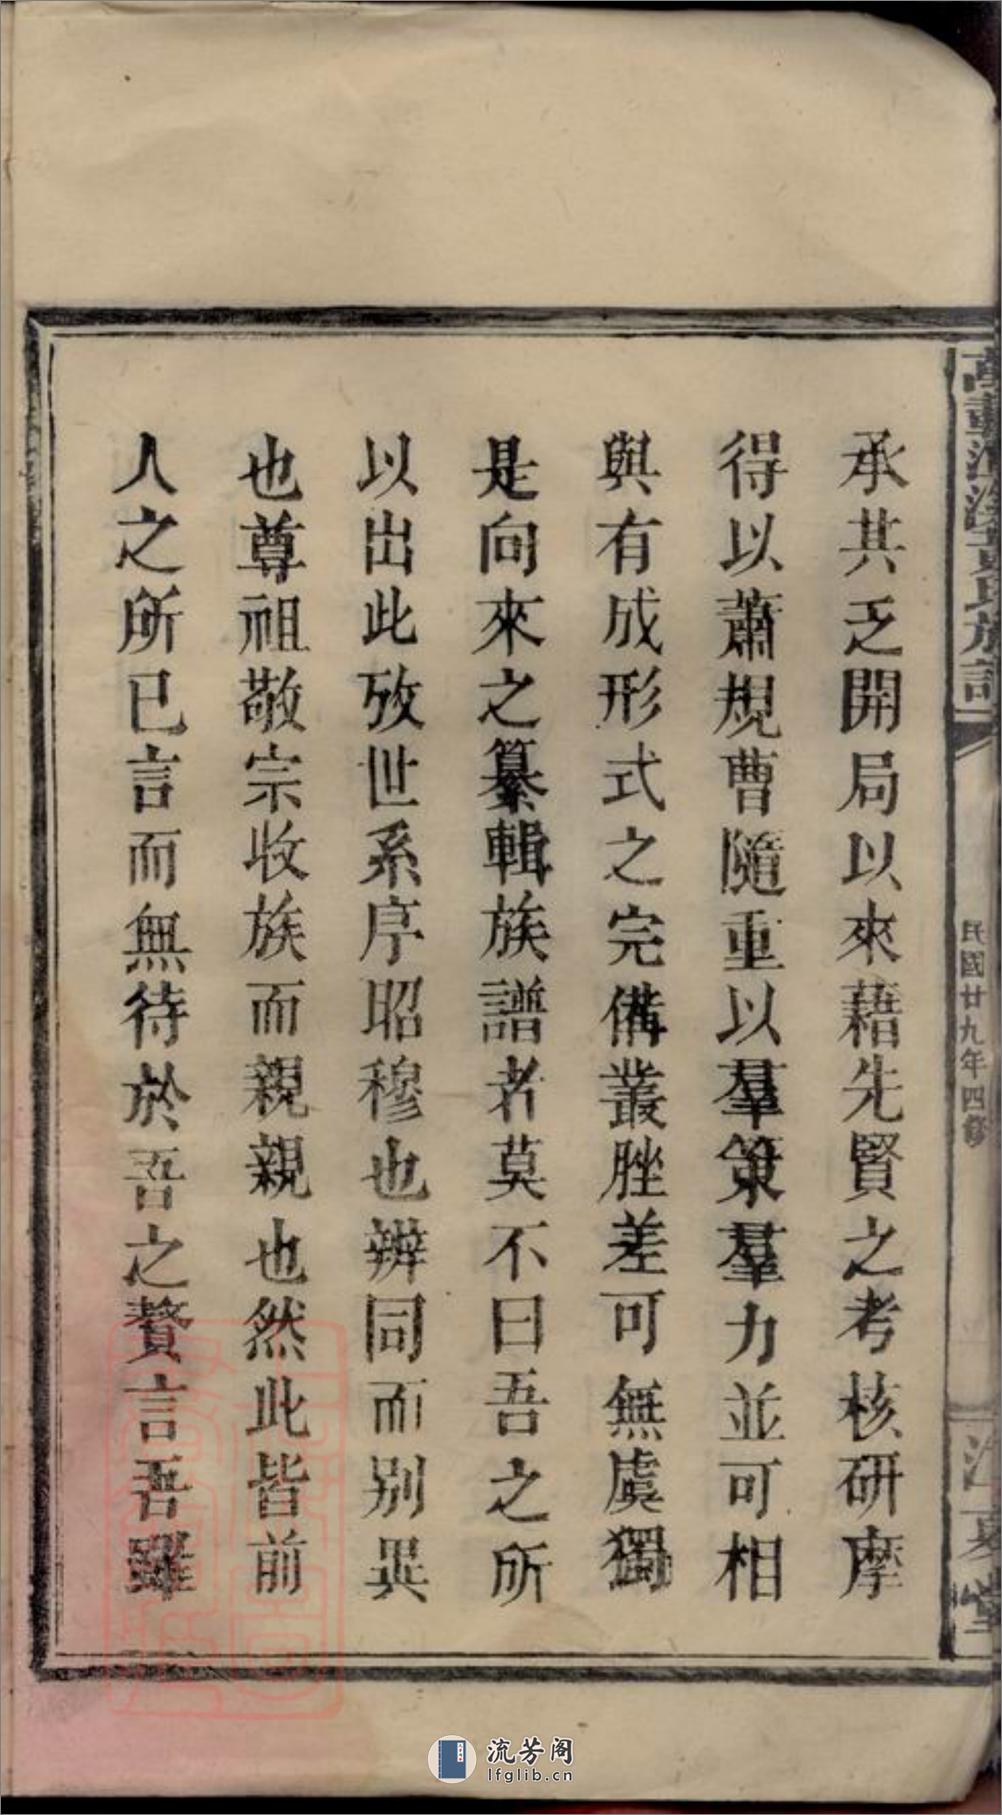 承其乏開局以來藉先賢之考核研摩
得以蕭規曹隨重以羣策羣力並可相
與有成形式之完備叢脞差可無虞獨
是向來之纂輯族譜者莫不曰吾之所
以出此攷世系序昭穆也辨同而别異
也尊祖敬宗收族而親親也然此皆前
人之所已言而無待於吾之贅言吾雖
民國廿九年四修
江夏堂
流芳阁
lfglib.cn